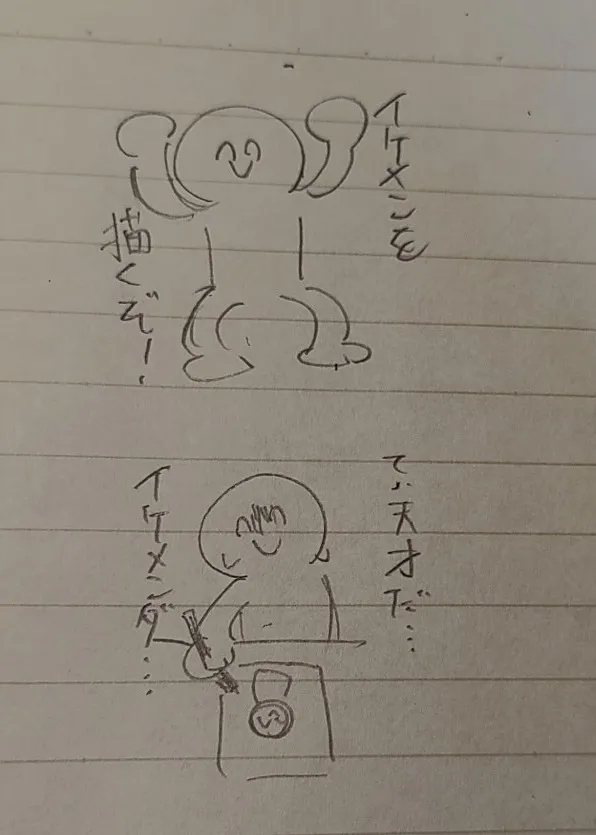 イケメンを
描くぞー!
て、天才だ…
イケメンダ…